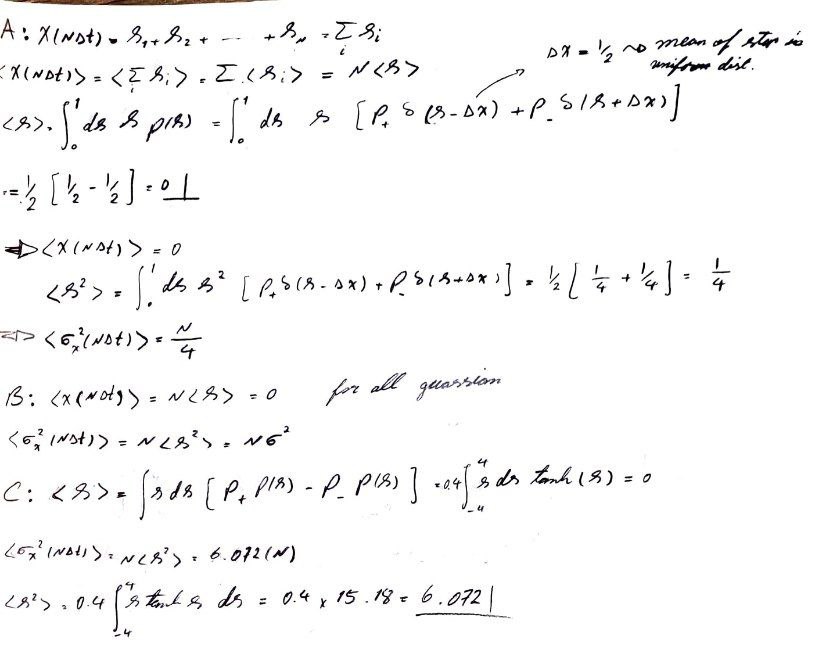 A: X(NΔt) = s₁ + s₂ + ... + s_N = Σ_i s_i
Δx = 1/2 ~> mean of step is
uniform dist.
<X(NΔt)> = <Σ_i s_i> = Σ <s_i> = N<s>
<s> = ∫₀¹ ds s p(s) = ∫₀¹ ds s [P₊ δ(s-Δx) + P₋ δ(s+Δx)]
= 1/2 [1/2 - 1/2] = 0
⇒ <X(NΔt)> = 0
<s²> = ∫₀¹ ds s² [P₊ δ(s-Δx) + P₋ δ(s+Δx)] = 1/2 [1/4 + 1/4] = 1/4
⇒ <σ_x²(NΔt)> = N/4
B: <x(NΔt)> = N<s> = 0 for all guassian
<σ_x²(NΔt)> = N<s²> = Nσ²
C: <s> = ∫ s ds [P₊ P(s) - P₋ P(s)] = 0.4 ∫₋₄⁴ s ds tanh(s) = 0
<σ_x²(NΔt)> = N<s²> = 6.072(N)
<s²> = 0.4 ∫₋₄⁴ s tanh s ds = 0.4 × 15.18 = 6.072